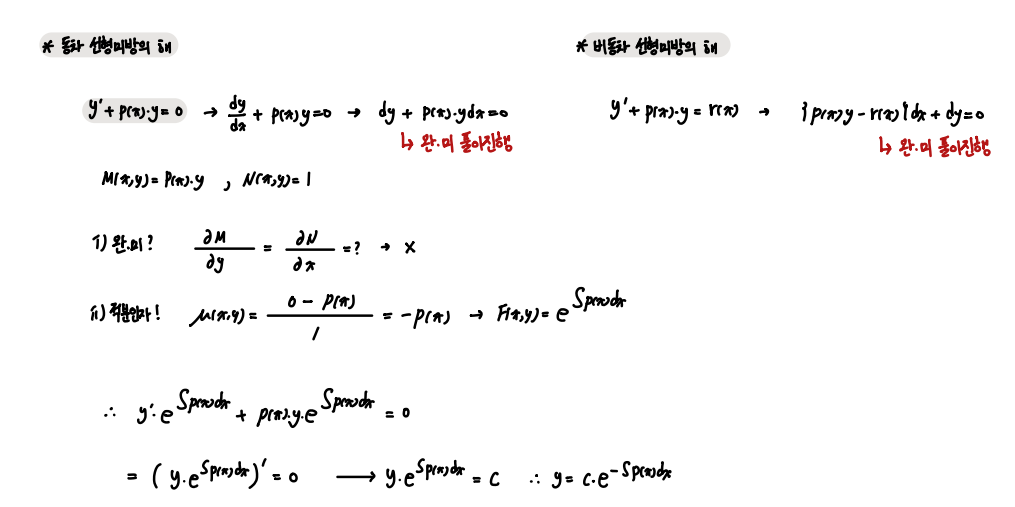 * 동차 선형미방의 해
y' + p(x)·y = 0 → dy/dx + p(x)y = 0 → dy + p(x)·ydx = 0
↳ 완.미 풀이진행
M(x,y) = p(x)·y , N(x,y) = 1
i) 완.미? ∂M/∂y = ∂N/∂x = ? → x
ii) 적분인자! μ(x,y) = (0 - p(x))/1 = -p(x) → F(x,y) = e^∫p(x)dx
∴ y'·e^∫p(x)dx + p(x)·y·e^∫p(x)dx = 0
= (y·e^∫p(x)dx)' = 0 ⟶ y·e^∫p(x)dx = c ∴ y = c·e^-∫p(x)dx
* 비동차 선형미방의 해
y' + p(x)·y = r(x) → {p(x)y - r(x)}dx + dy = 0
↳ 완.미 풀이진행